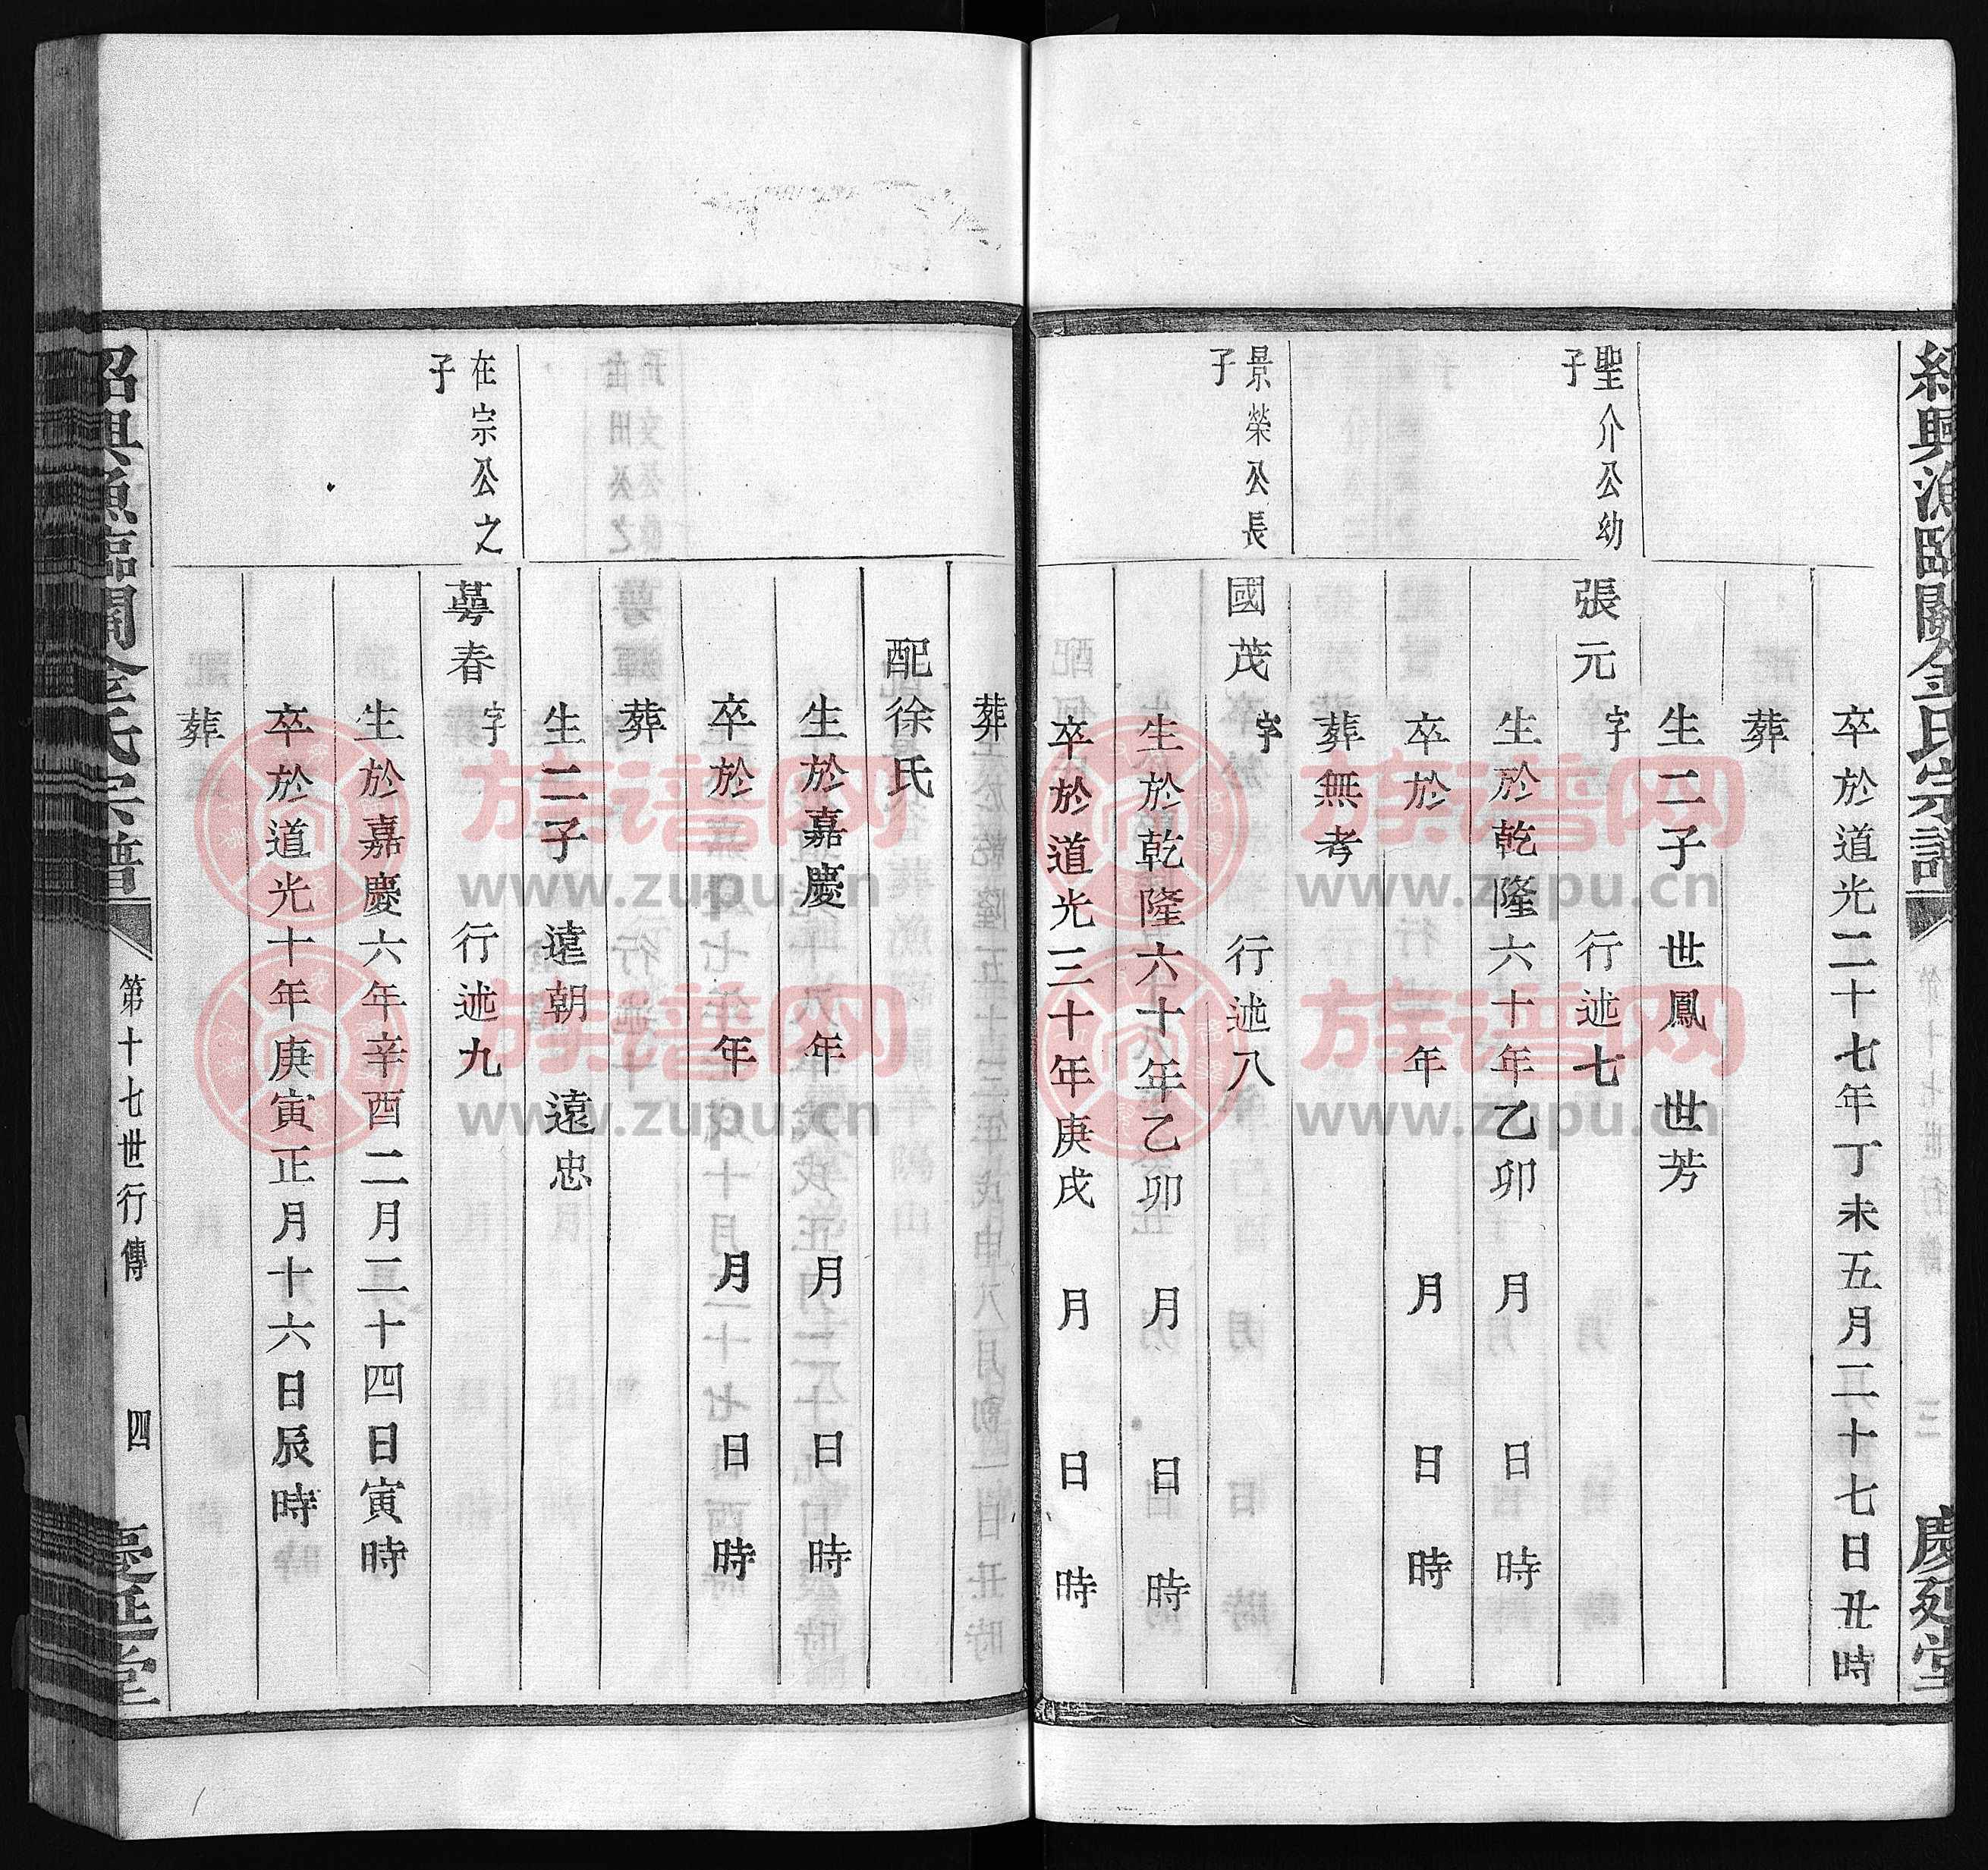 紹興漁臨關金氏宗譜
慶延堂
卒於道光二十七年丁未五月二十七日丑時
葬
生二子 世鳳 世芳
聖介公幼
子
張元 字 行述七
生於乾隆六十年乙卯 月 日 時
卒於 年 月 日 時
葬無考
景榮公長
子
國茂 字 行述八
生於乾隆六十年乙卯 月 日 時
卒於道光三十年庚戌 月 日 時
葬
配徐氏
生於嘉慶 年 月 日 時
卒於 年 月 日 時
葬
生二子 遠朝 遠忠
在宗公之
子
萼春 字 行述九
生於嘉慶六年辛酉二月二十四日寅時
卒於道光十年庚寅正月十六日辰時
葬
紹興漁臨關金氏宗譜
第十七世行傳
四
慶延堂
族谱网
www.zupu.cn
族谱网
www.zupu.cn
族谱网
www.zupu.cn
族谱网
www.zupu.cn